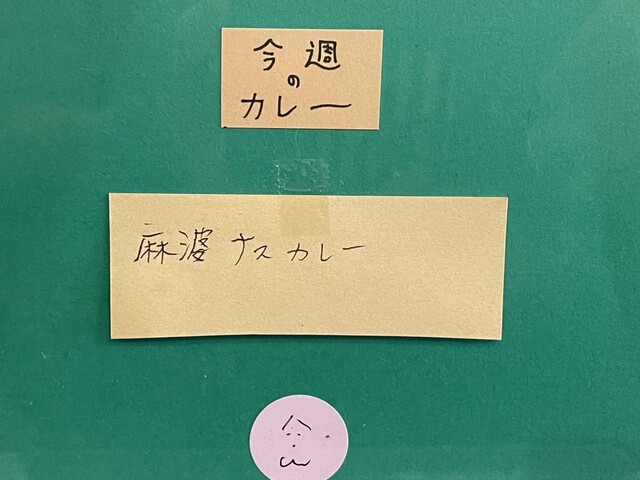 今週
の
カレー
麻婆ナスカレー